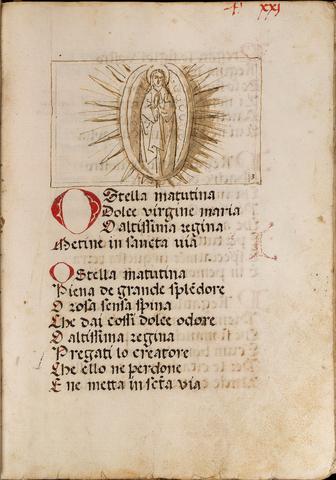 xxj
O Stella matutina
Dolce virgine maria
O altissima regina
Metine in sancta via
O Stella matutina
Piena de grande splẽdore
O rosa sensa spina
Che dai cossi dolce odore
O altissima regina
Pregati lo creatore
Che ello ne perdone
E ne metta in sc̃ta via